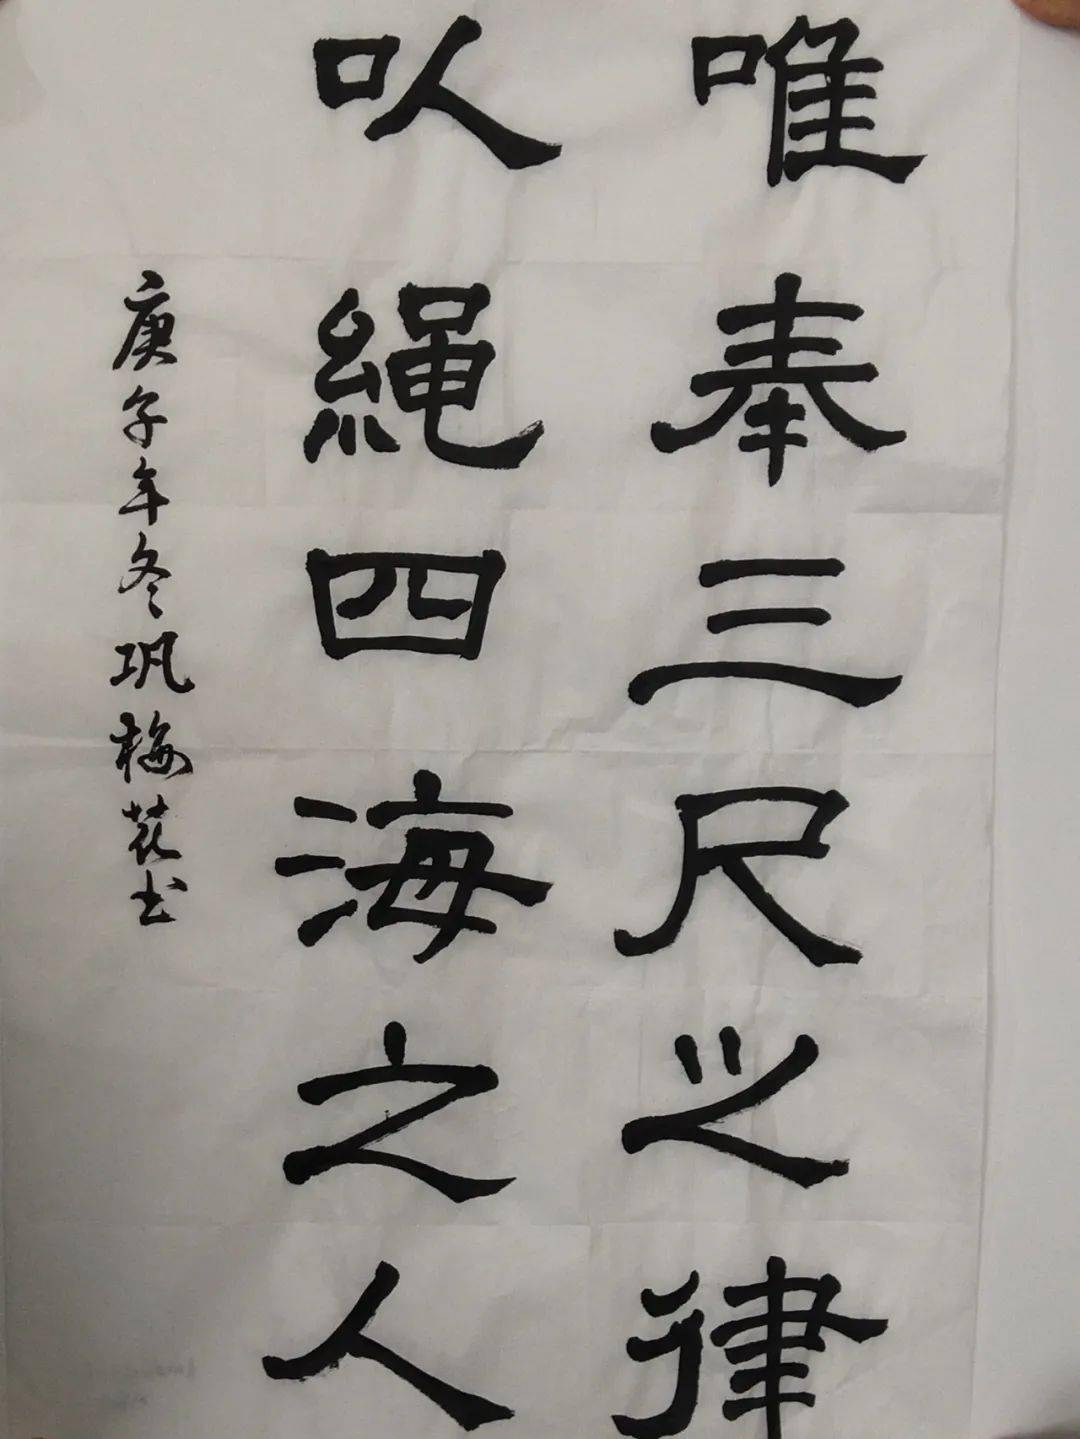 唯奉三尺之律
以繩四海之人
庚子年冬巩梅花书